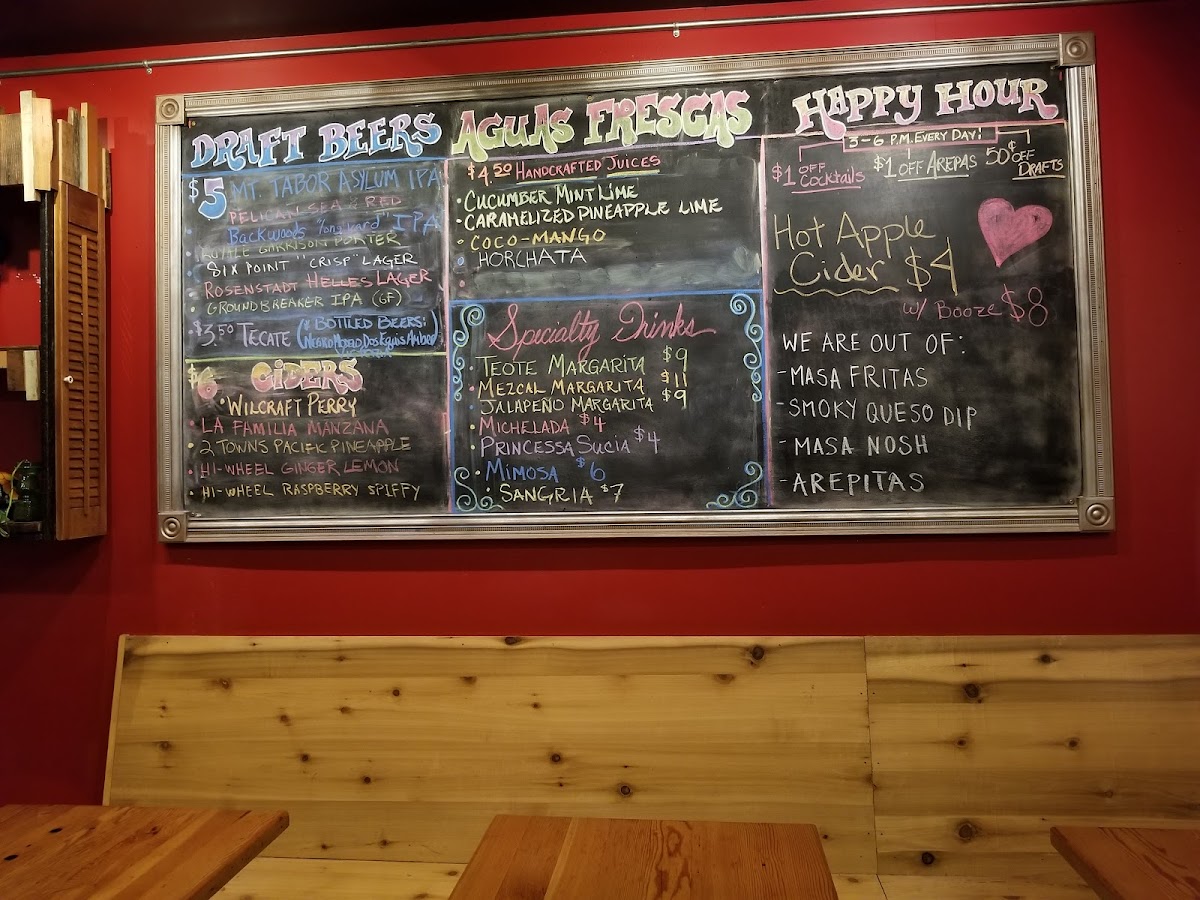 DRAFT BEERS
$5 MT. TABOR ASYLUM IPA
PELICAN SEA RED
Backwoods IPA
ROYALE GARRISON PORTER
SIX POINT "CRISP" LAGER
ROSENSTADT HELLES LAGER
GROUNDBREAKER IPA (GF)
$3.50 TECATE (BOTTLED BEERS:
NEGRO MODELO, DOS EQUIS AMBER
VICTORIA)
$6 CIDERS
WILCRAFT PERRY
LA FAMILIA MANZANA
2 TOWNS PACIFIC PINEAPPLE
HI-WHEEL GINGER LEMON
HI-WHEEL RASPBERRY SPIFFY
AGUAS FRESCAS
$4.50 HANDCRAFTED JUICES
CUCUMBER MINT LIME
CARAMELIZED PINEAPPLE LIME
COCO-MANGO
HORCHATA
Specialty Drinks
TEOTE MARGARITA $9
MEZCAL MARGARITA $11
JALAPEÑO MARGARITA $9
MICHELADA $4
PRINCESSA SUCIA $4
MIMOSA $6
SANGRIA $7
HAPPY HOUR
3-6 P.M. EVERY DAY!
$1 OFF COCKTAILS
$1 OFF AREPAS
50¢ OFF DRAFTS
Hot Apple
Cider $4
w/ Booze $8
WE ARE OUT OF:
-MASA FRITAS
-SMOKY QUESO DIP
-MASA NOSH
-AREPITAS